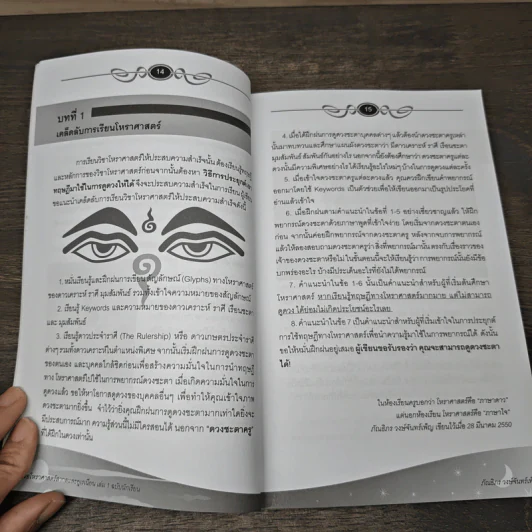 14
บทที่ 1
เคล็ดลับการเรียนโหราศาสตร์
การเรียนวิชาโหราศาสตร์ให้ประสบความสำเร็จนั้น ต้องเรียนรู้
และหลักการของวิชาโหราศาสตร์ก่อนจากนั้นต้องหา วิธีการประยุกต์
ทฤษฎีมาใช้ในการดูดวงให้ได้ จึงจะประสบความสำเร็จในการเรียน
ขอแนะนำเคล็ดลับการเรียนวิชาโหราศาสตร์ให้ประสบความสำเร็จดังนี้
1. หมั่นเรียนรู้และฝึกฝนการเขียนสัญลักษณ์ (Glyphs) ทางโหราศาสตร์
ของดาวเคราะห์ ราศี มุมสัมพันธ์ รวมทั้งเข้าใจความหมายของสัญลักษณ์
2. เรียนรู้ Keywords และความหมายของดาวเคราะห์ ราศี เรือนชะตา
และ มุมสัมพันธ์
3. เรียนรู้ดาวประจำราศี (The Rulership) หรือ ดาวเกษตรประจำราศี
ต่างๆ รวมทั้งดาวเคราะห์ในตำแหน่งพิเศษ จากนั้นเริ่มฝึกฝนการดูดวงชะตา
ของตนเอง และบุคคลใกล้ชิดก่อนเพื่อสร้างความมั่นใจในการนำทฤษฎี
ทางโหราศาสตร์ไปใช้ในการพยากรณ์ดวงชะตา เมื่อเกิดความมั่นใจในการ
ดูดวงแล้ว ขอให้หาโอกาสดูดวงของบุคคลอื่นๆ เพื่อทำให้คุณเข้าใจภาษา
ดวงชะตามากยิ่งขึ้น จำไว้ว่ายิ่งคุณฝึกฝนการดูดวงชะตามากเท่าใดยิ่งจะ
มีประสบการณ์มาก ความรู้ส่วนนี้ไม่มีใครสอนได้ นอกจาก "ดวงชะตาครู"
ที่ได้ฝึกในดวงเท่านั้น
15
4. เมื่อได้ฝึกฝนการดูดวงชะตาบุคคลต่างๆ แล้วต้องนำดวงชะตาครูเหล่า
นั้นมาทบทวนและศึกษาแผนผังดวงชะตาว่า มีดาวเคราะห์ ราศี เรือนชะตา
มุมสัมพันธ์ สัมพันธ์กันอย่างไร นอกจากนี้ยังต้องศึกษาว่า ดวงชะตาครูแต่ละ
ดวงนั้นมีความพิเศษอย่างไร ได้เรียนรู้อะไรใหม่ๆ บ้างในการดูดวงแต่ละครั้ง
5. เมื่อเข้าใจดวงชะตาครูแต่ละดวงแล้ว คุณควรฝึกเขียนคำพยากรณ์
ออกมาโดยใช้ Keywords เป็นตัวช่วยเพื่อให้เขียนออกมาเป็นรูปประโยคที่
อ่านแล้วเข้าใจ
6. เมื่อฝึกฝนตามคำแนะนำในข้อที่ 1-5 อย่างเชี่ยวชาญแล้ว ให้ฝึก
พยากรณ์ดวงชะตาด้วยภาษาพูดที่เข้าใจง่าย โดยเริ่มจากดวงชะตาตนเอง
ก่อน จากนั้นค่อยฝึกพยากรณ์จากดวงชะตาครู หลังจากจบการพยากรณ์
แล้วให้ลองสอบถามดวงชะตาครูว่า สิ่งที่พยากรณ์มานั้น ตรงกับเรื่องราวของ
เจ้าของดวงชะตาหรือไม่ ในขั้นตอนนี้จะให้เรียนรู้ว่าการพยากรณ์นั้นยังมีข้อ
บกพร่องอะไร บ้างมีประเด็นอะไรที่ยังไม่ได้พยากรณ์
7. คำแนะนำในข้อ 1-6 นั้นเป็นคำแนะนำสำหรับผู้ที่เริ่มต้นศึกษา
โหราศาสตร์ หากเรียนรู้ทฤษฎีทางโหราศาสตร์มากมาย แต่ไม่สามารถ
ดูดวงได้ย่อมไม่เกิดประโยชน์อะไรเลย
8. คำแนะนำในข้อ 7 เป็นคำแนะนำสำหรับผู้ที่เริ่มเข้าใจในการประยุกต์
การใช้ทฤษฎีทางโหราศาสตร์ในการนำความรู้มาใช้ในการพยากรณ์ได้ ดังนั้น
ขอให้หมั่นฝึกฝนอยู่เสมอ ผู้เขียนขอรับรองว่า คุณจะสามารถดูดวงชะตา
ได้!
ในห้องเรียนครูบอกว่า โหราศาสตร์คือ "ภาษาดาว"
แต่นอกห้องเรียน โหราศาสตร์คือ "ภาษาใจ"
ภัณฑิภร วงษ์จันทร์เพ็ญ เขียนไว้เมื่อ 28 มีนาคม 2550
เล่ม 1 ฉบับนักเรียน
ภัณฑิภร วงษ์จันทร์เพ็